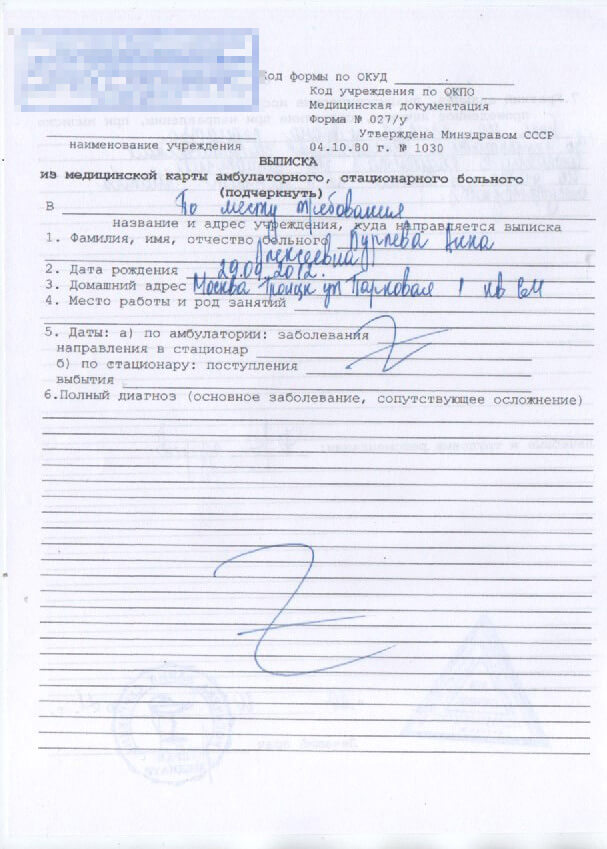 Код формы по ОКУД
Код учреждения по ОКПО
Медицинская документация
Форма № 027/у
Утверждена Минздравом СССР
наименование учреждения 04.10.80 г. № 1030
ВЫПИСКА
из медицинской карты амбулаторного, стационарного больного
(подчеркнуть)
В По месту требования
название и адрес учреждения, куда направляется выписка
1. Фамилия, имя, отчество больного Анна
Алексеевна
2. Дата рождения 29.09.2012.
3. Домашний адрес Москва Троицк ул Парковая 1 кв
4. Место работы и род занятий
5. Даты: а) по амбулатории: заболевания
направления в стационар
б) по стационару: поступления
выбытия
6.Полный диагноз (основное заболевание, сопутствующее осложнение)